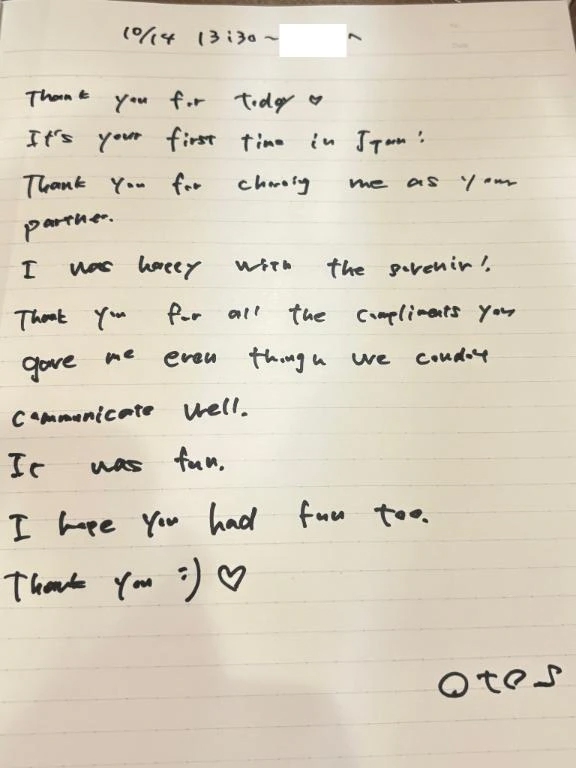 10/14 13:30~ へ
Thank you for today ♡
It's your first time in Japan!
Thank you for choosing me as your
partner.
I was happy with the sovenir!
Thank you for all the compliments you
gave me even though we couldn't
communicate well.
It was fun.
I hope you had fun too.
Thank you :) ♡